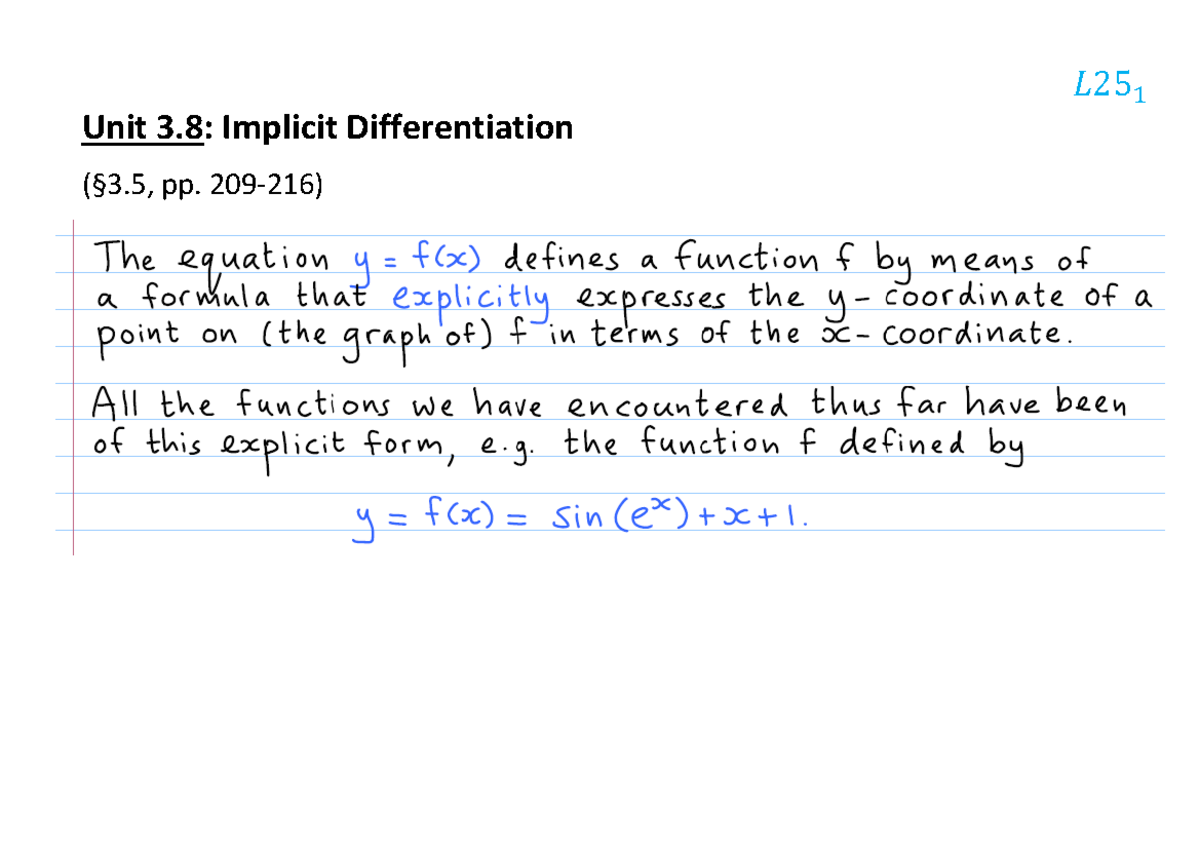 L25₁
Unit 3.8: Implicit Differentiation
(§3.5, pp. 209-216)
The equation y = f(x) defines a function f by means of
a formula that explicitly expresses the y-coordinate of a
point on (the graph of) f in terms of the x-coordinate.
All the functions we have encountered thus far have been
of this explicit form, e.g. the function f defined by
y = f(x) = sin(eˣ)+x+1.